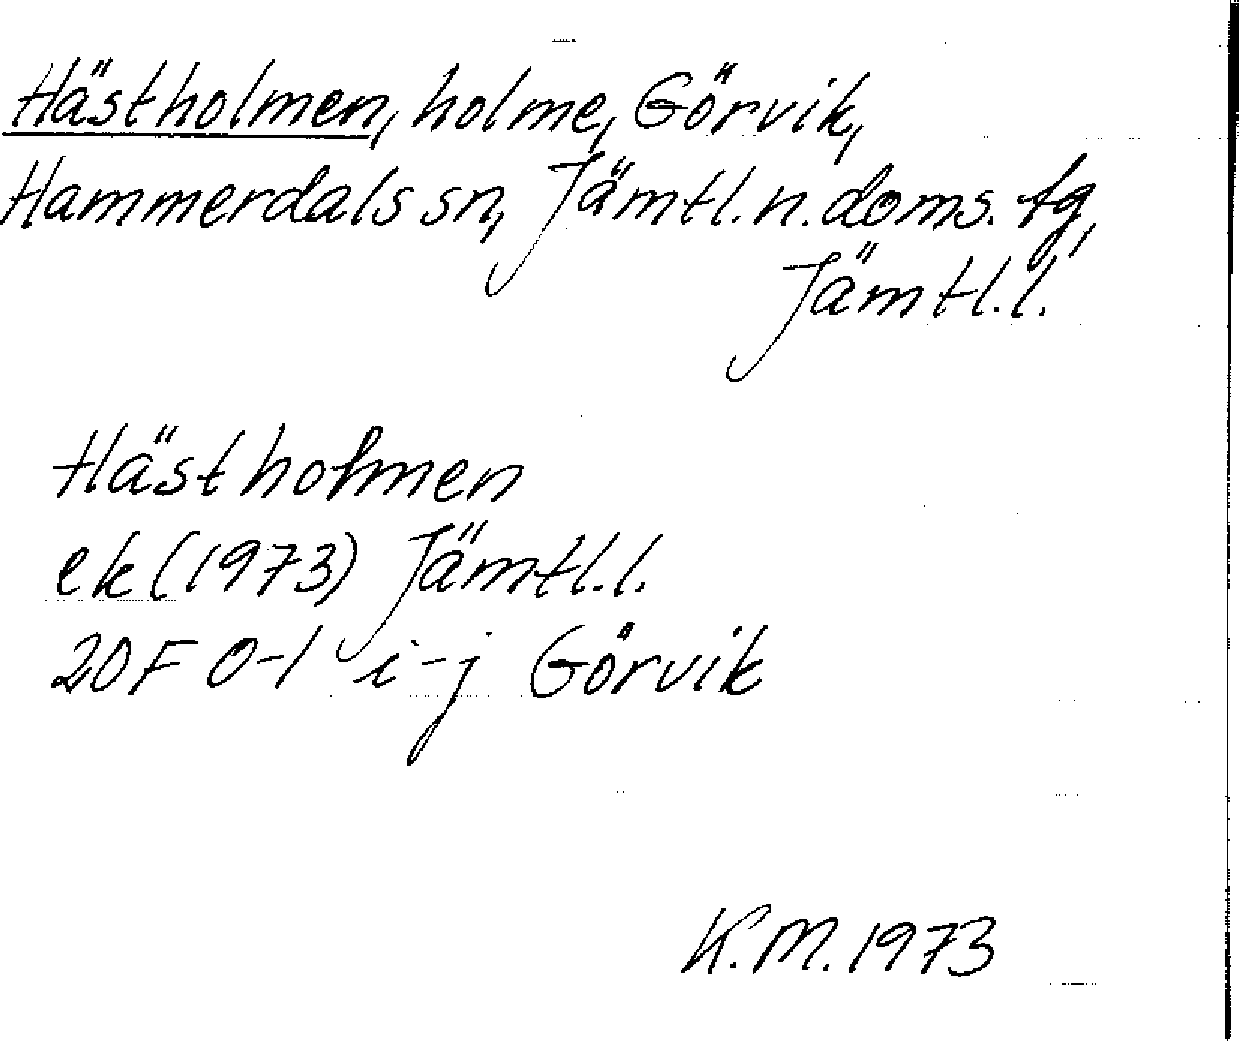 Hästholmen, holme, Görvik,
Hammerdals sn, Jämtl. n. doms. tg,
Jämtl. l.
Hästholmen
ek (1973) Jämtl. l.
20F 0-1 i-j Görvik
K.M. 1973